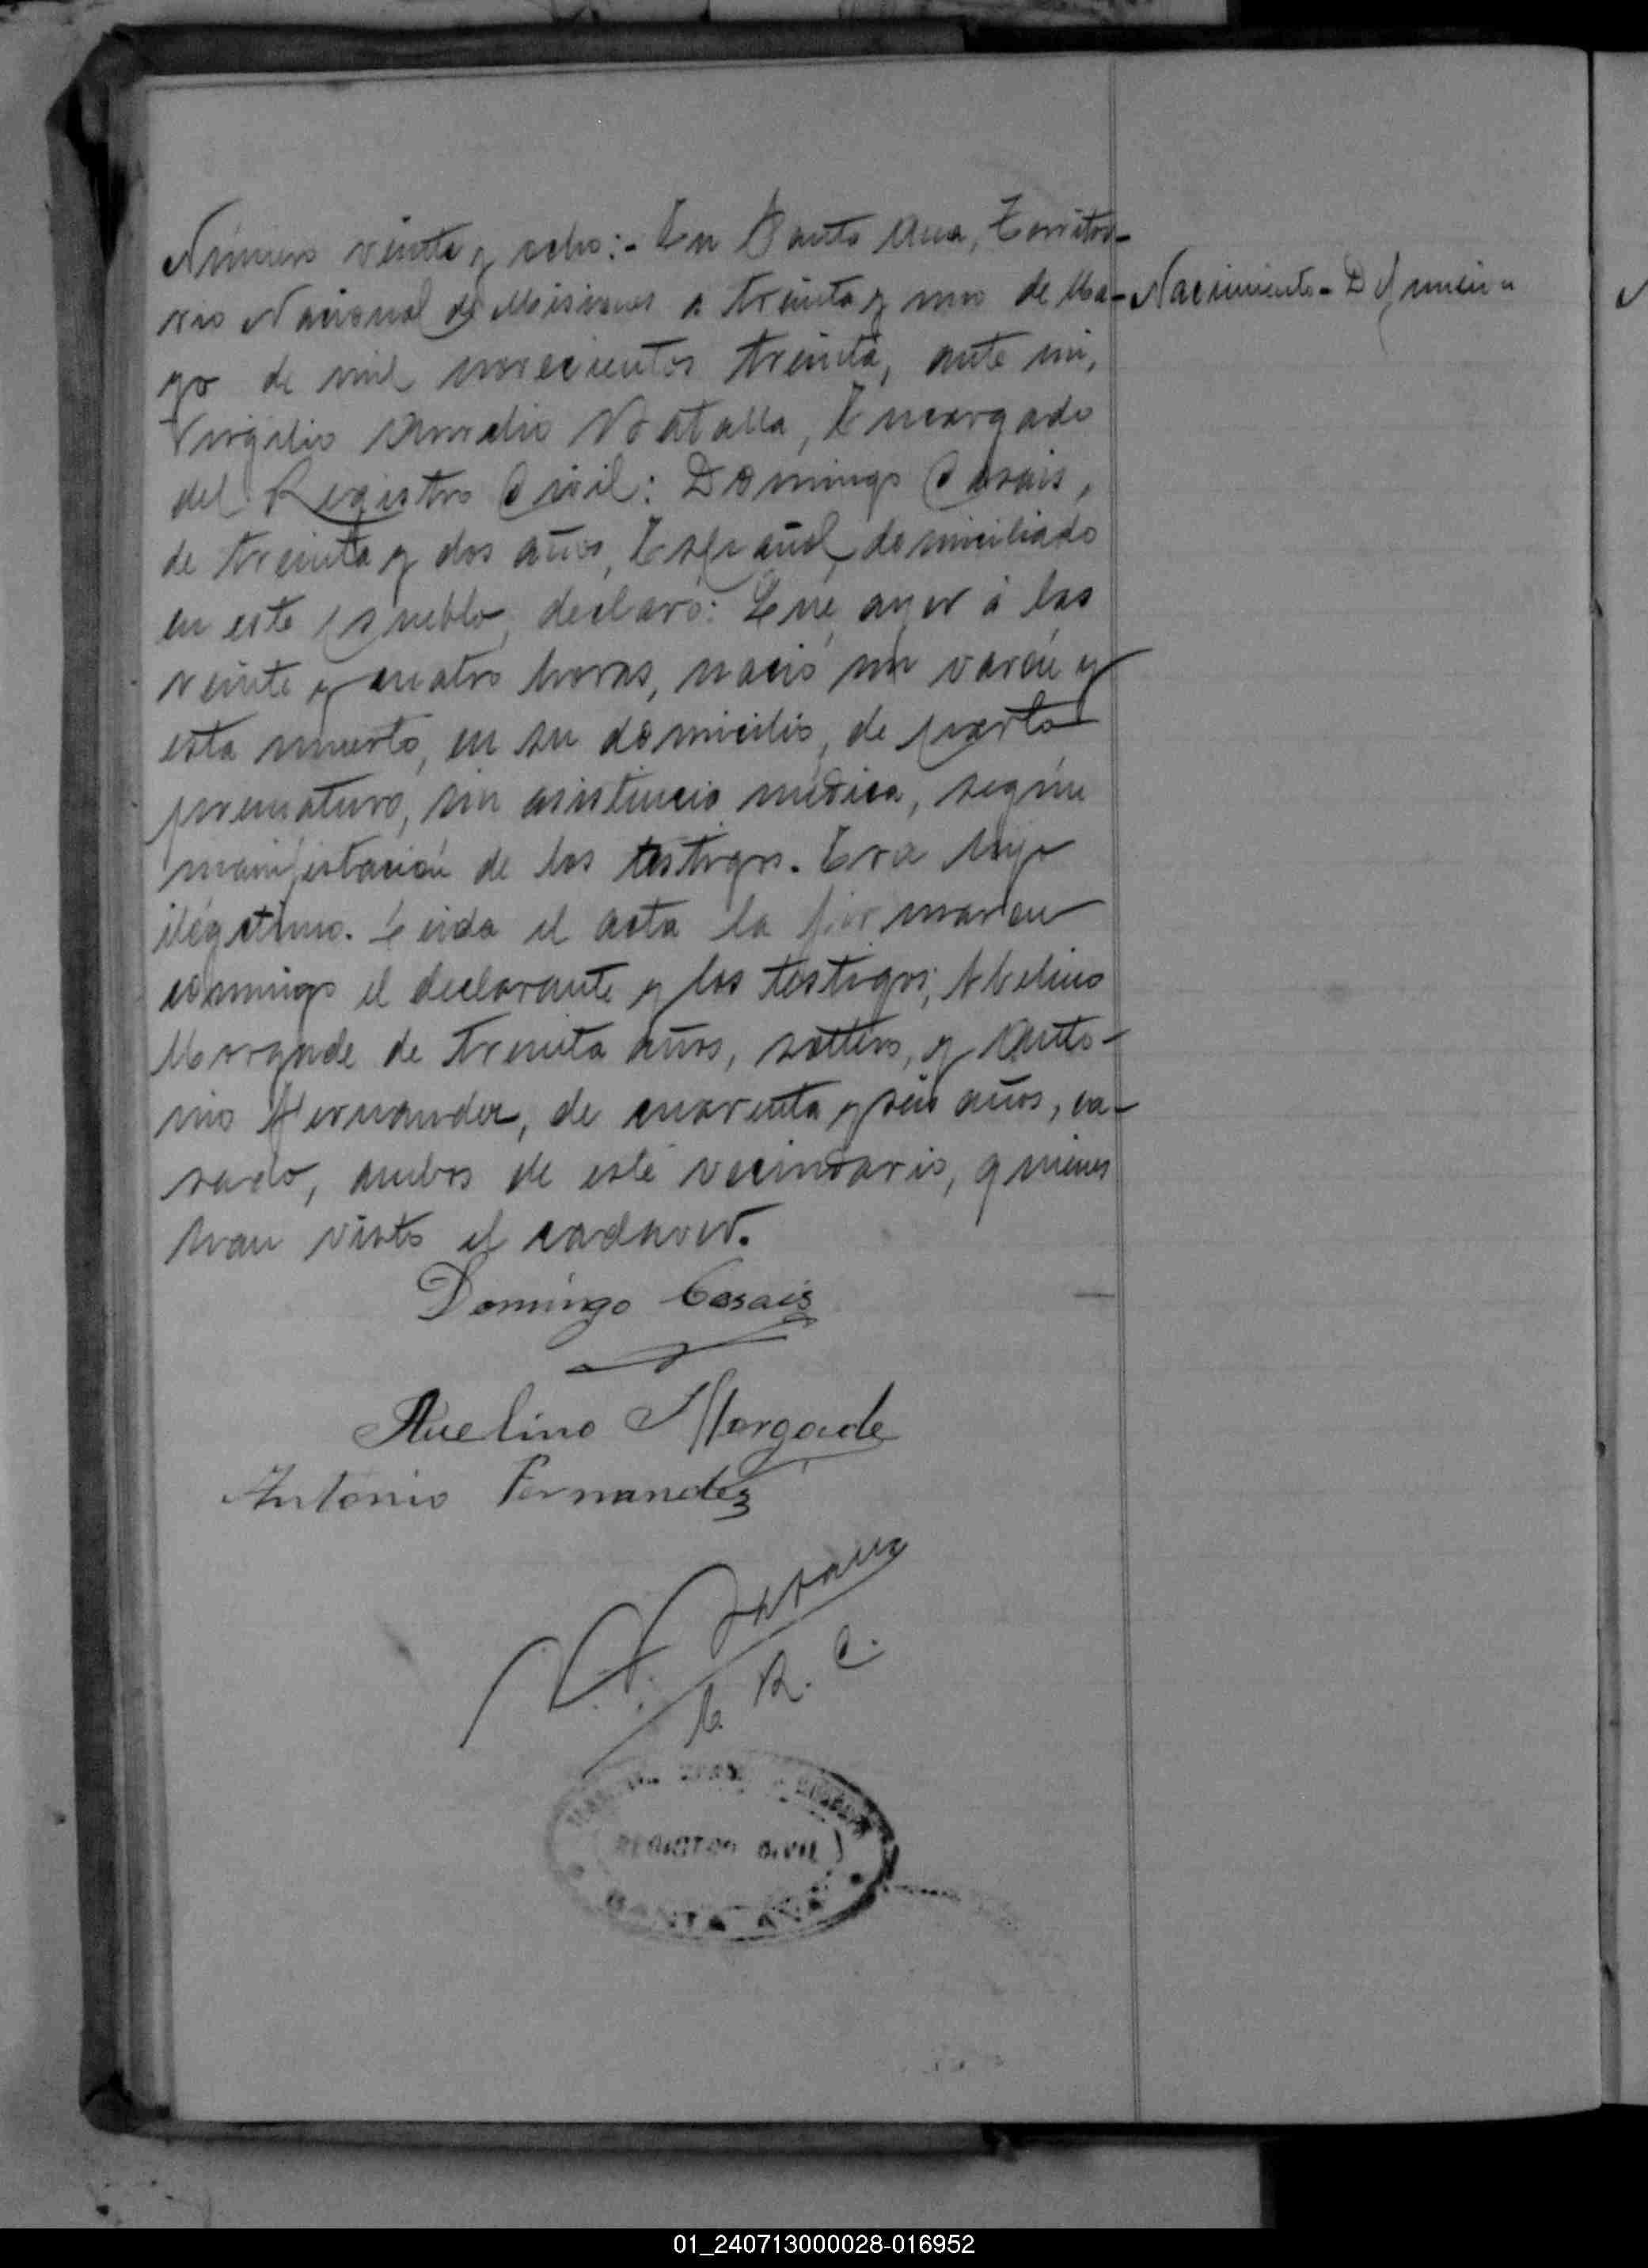 Número veinte y ocho:- En Santa Ana, Territo-
rio Nacional de Misiones a treinta y uno de Ma-
yo de mil novecientos treinta, ante mi,
Virgilio Aurelio Batalla, Encargado
del Registro Civil: Domingo Casais,
de treinta y dos años, Español, domiciliado
en este pueblo, declaró: Que ayer á las
veinte y cuatro horas, nació un varón y
esta muerto, en su domicilio, de parto
prematuro, sin asistencia médica, según
manifestación de los testigos. Era hijo
ilegitimo. Leida el acta la firmaron
conmigo el declarante y los testigos; Abelino
Morgade de treinta años, soltero, y Anto-
nio Fernandez, de cuarenta y seis años, ca-
sado, ambos de este vecindario, quienes
han visto el cadaver.
Nacimiento - Defuncion
Domingo Casais
Avelino Morgade
Antonio Fernandez
E. R. C.
REGISTRO CIVIL
SANTA ANA
01_240713000028-016952